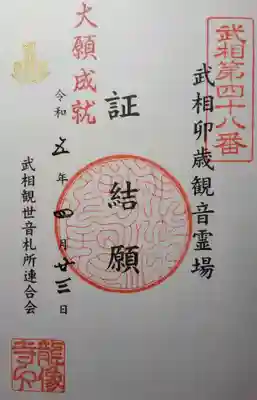 武相第四十八番
武相卯歳観音霊場
証
結願
大願成就
令和五年四月廿三日
武相観世音札所連合会